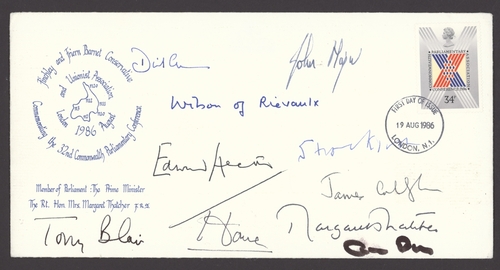 Finchley and Friern Barnet Conservative
and Unionist Association
Commemorating the 32nd Commonwealth Parliamentary Conference
London
August
1986
John Major
Wilson of Rievaulx
Edward Heath
Stockton
James Callaghan
Margaret Thatcher
Home
Tony Blair
Member of Parliament: The Prime Minister
The Rt. Hon. Mrs. Margaret Thatcher F.R.S.
34p
FIRST DAY OF ISSUE
19 AUG 1986
LONDON. N.1.